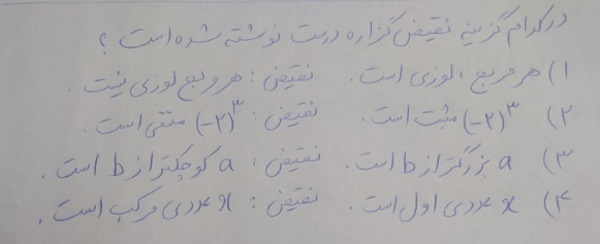 در کدام گزینه نقیض گزاره درست نوشته شده است ؟
۱) هر مربع، لوزی است. نقیض : هر مربع لوزی نیست.
۲) (-۲)^۳ مثبت است. نقیض : (-۲)^۳ منفی است.
۳) a بزرگتر از b است. نقیض : a کوچکتر از b است.
۴) x عددی اول است. نقیض : x عددی مرکب است.